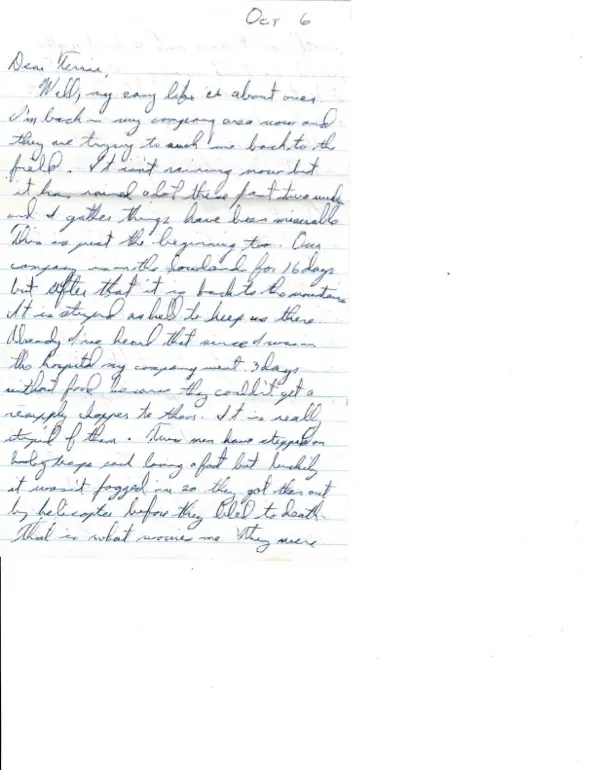 Oct 6
Dear Terrie,
Well, my easy life is about over.
I'm back in my company area now and
they are trying to send me back to the
field. It isn't raining now but
it has rained a lot these past two weeks
and I gather things have been miserable
This is just the beginning too. Our
company is in the lowland for 16 days
but after that it is back to the mountains
It is stupid as hell to keep us there.
Already I've heard that since I was in
the hospital my company went 3 days
without food because they couldn't get a
resupply chopper to them. It is really
stupid of them. Two men have stepped on
booby traps each losing a foot but luckily
it wasn't fogged in so they got them out
by helicopter before they bled to death.
That is what worries me they were